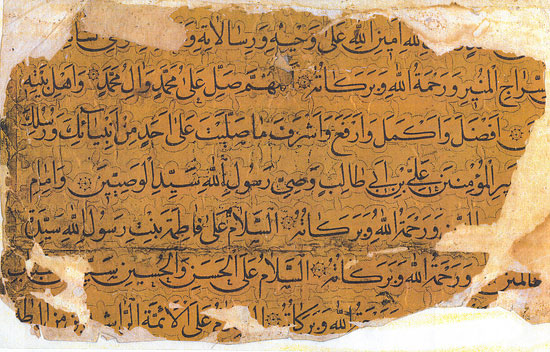 الله امين الله على وحيه ورسالاته و
السراج المنير ورحمة الله وبركاته اللهم صل على محمد وال محمد واهل بيته
افضل واكمل وارفع واشرف ما صليت على احد من انبيائك ورسلك
المؤمنين على بن ابى طالب وصى رسول الله سيد الوصيين وامام
ورحمة الله وبركاته السلام على فاطمة بنت رسول الله سيدة
ورحمة الله وبركاته السلام على الحسن والحسين
الله وبركاته على الائمة